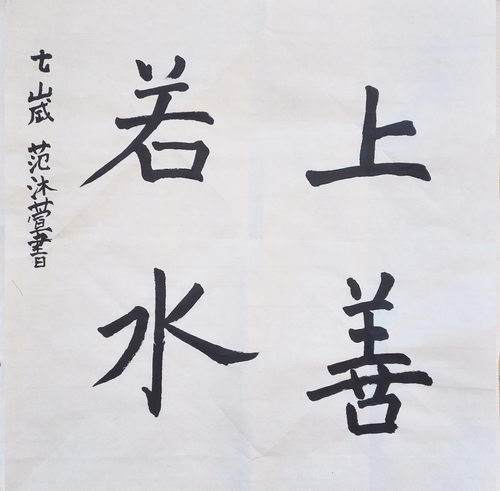 上善
若水
七岁 范沐萱書